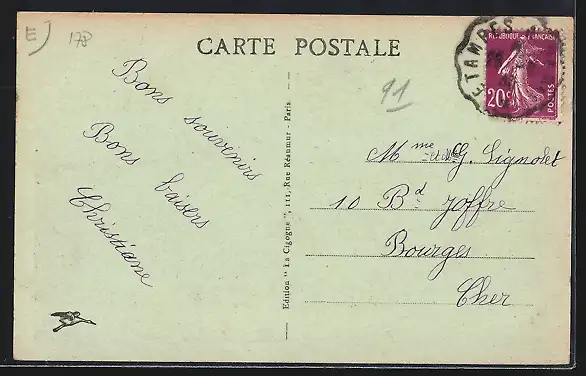 E
178
CARTE POSTALE
ETAMPES
REPUBLIQUE FRANÇAISE
20c
POSTES
91
Bons souvenirs
Bons baisers
Christiane
Edition " La Cigogne ", 111, Rue Réaumur - Paris
Mme et Mr G. Lignolet
10 Bd Joffre
Bourges
Cher